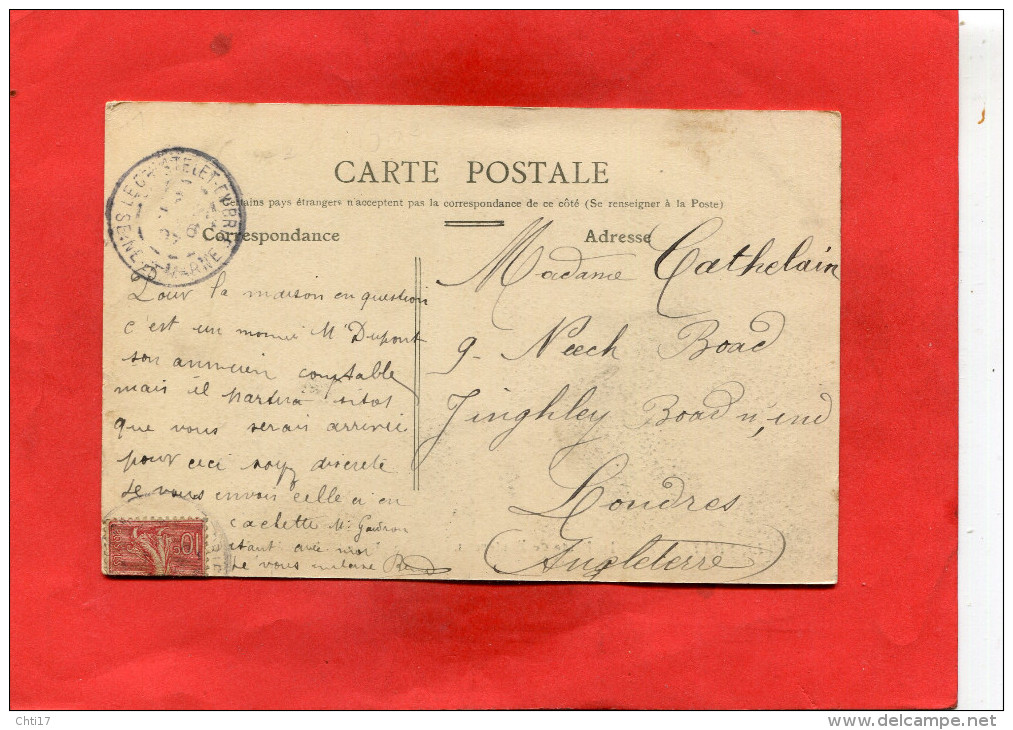 CARTE POSTALE
Certains pays étrangers n'acceptent pas la correspondance de ce côté (Se renseigner à la Poste)
Correspondance
Adresse
LE CHATELET-EN-BRIE
SEINE-ET-MARNE
Pour la maison en question
c'est un monnié Mr Dupont
son annicien comptable
mais il partira sitot
que vous serais arrivée
pour ceci soyez discrete
Je vous envois celle ci en
cachette Mr Gaudron
etant avec moi
Je vous
Madame Cathelain
9 - Neech Boad
Finghley Boad n, ind
Londres
Angleterre
10
Chti17
www.delcampe.net